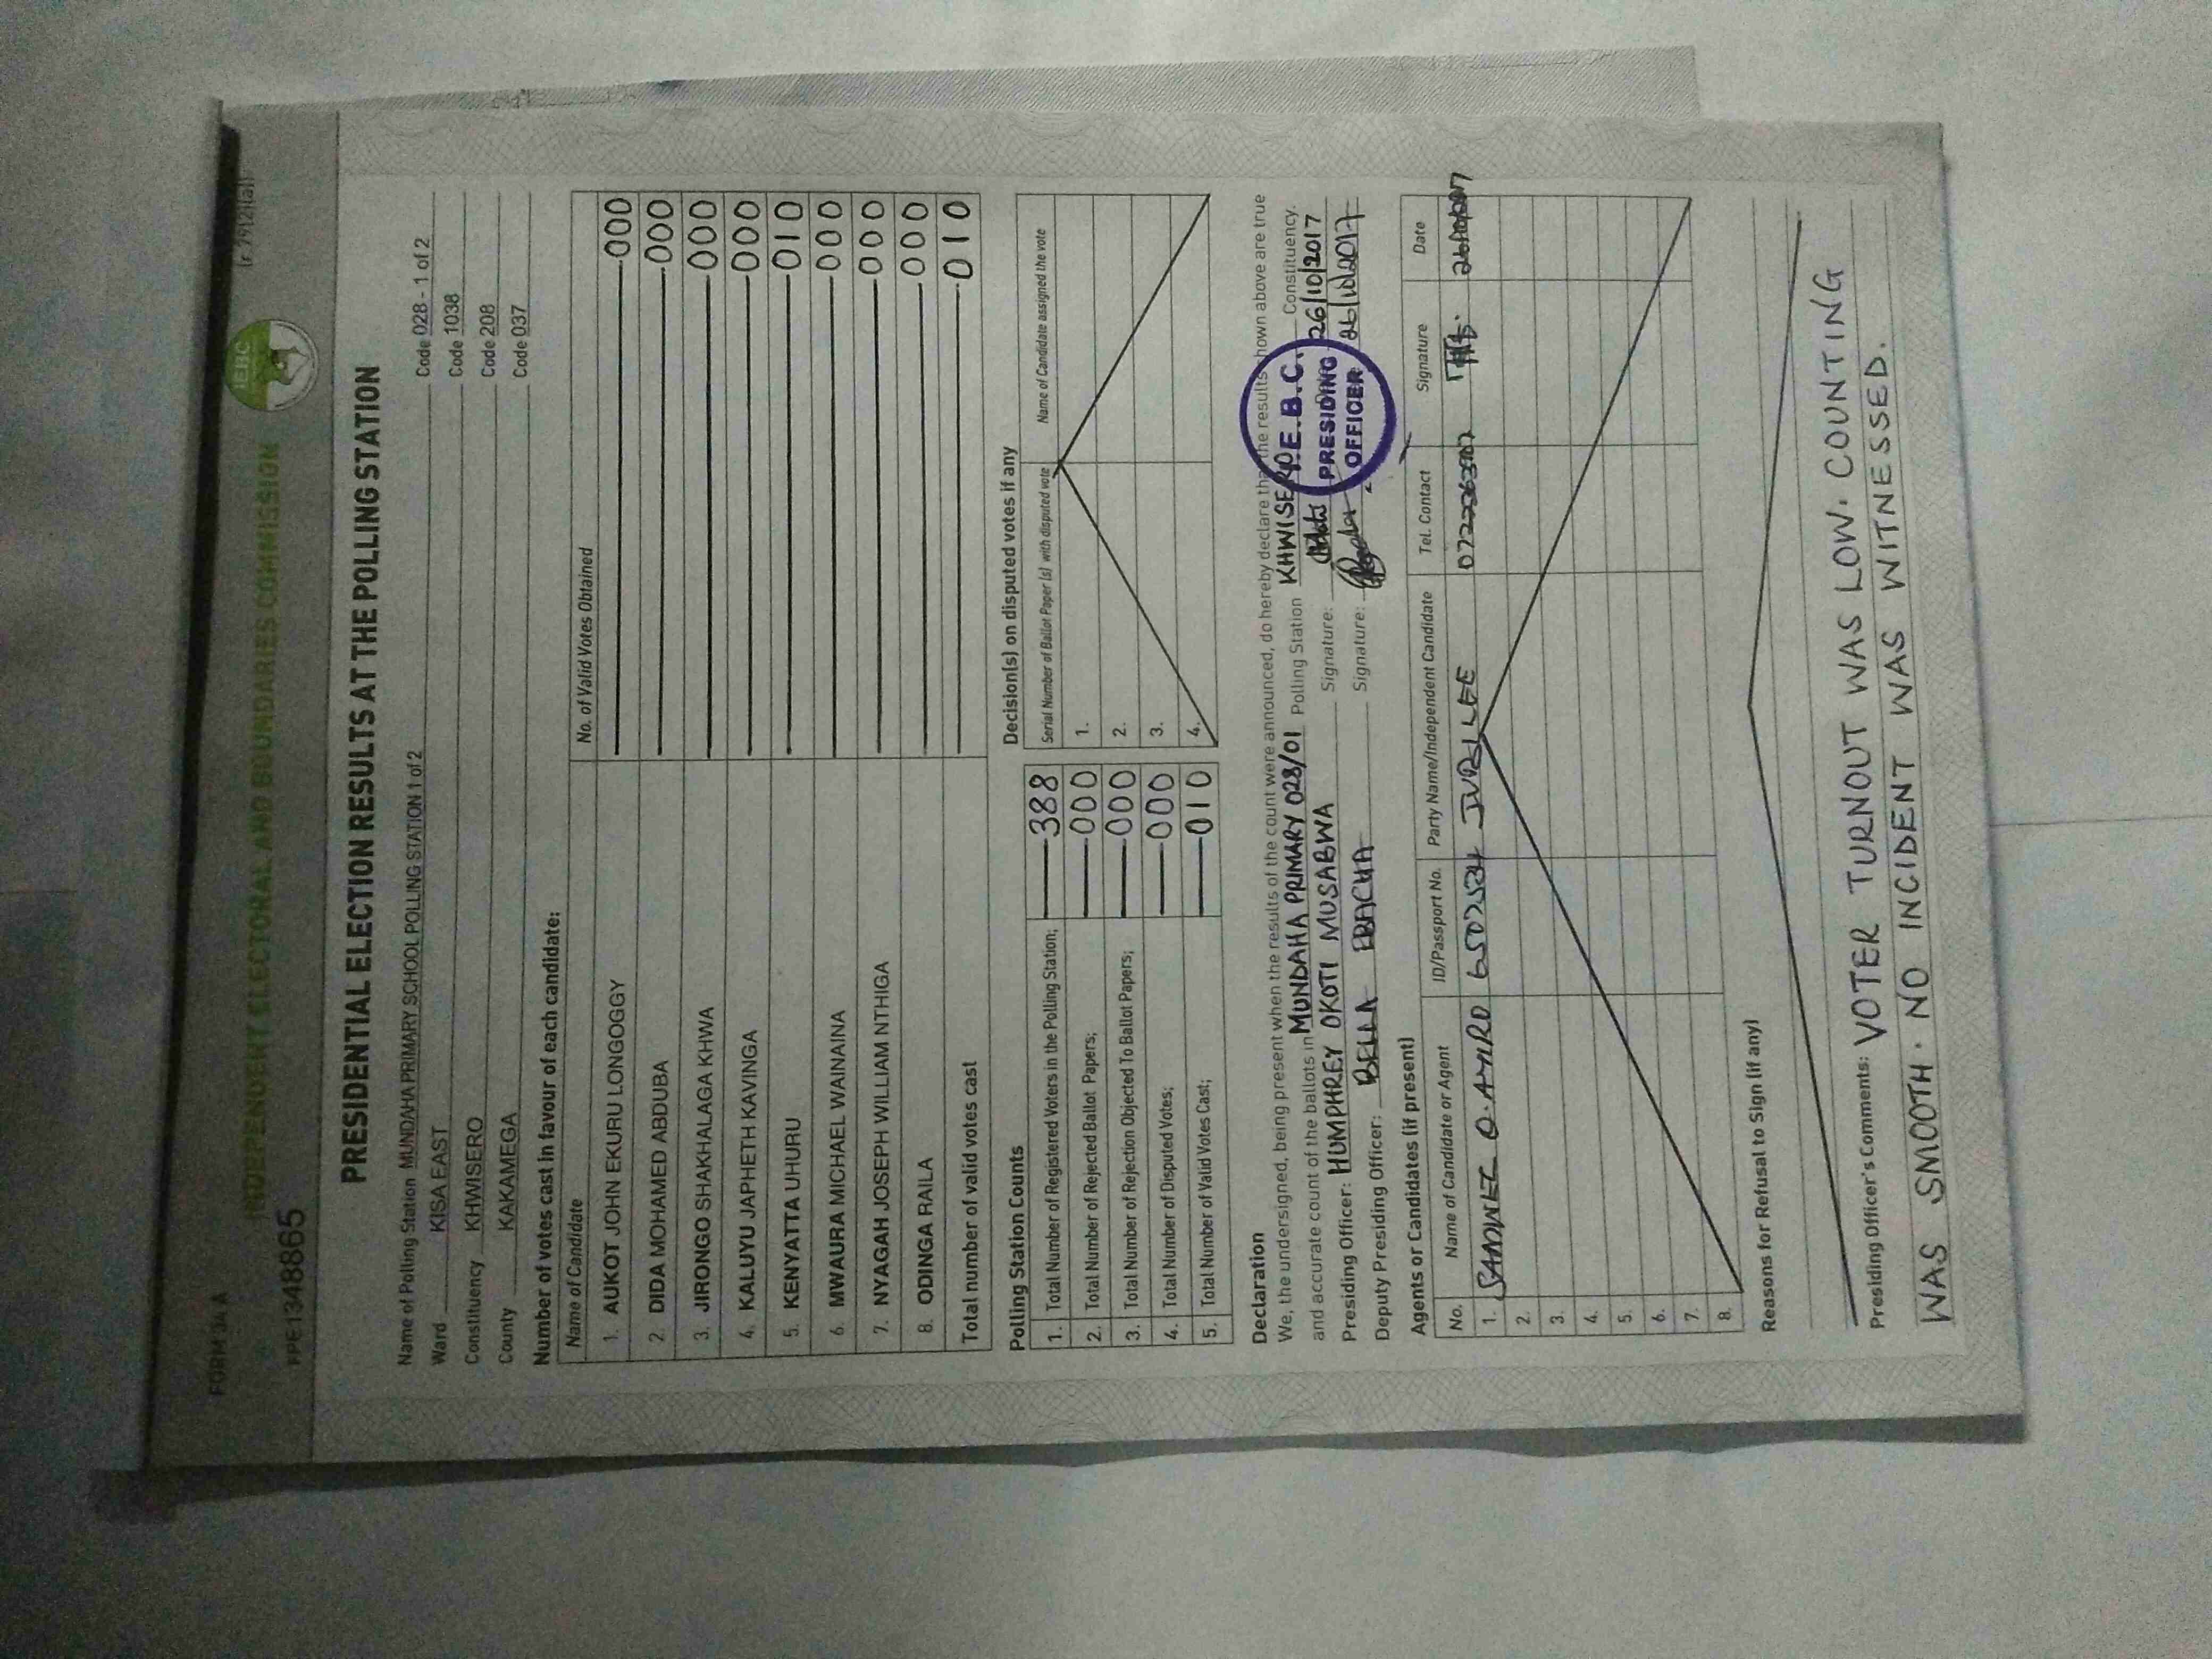 FORM 34 A
(r 79(2)(a))
IEBC
INDEPENDENT ELECTORAL AND BOUNDARIES COMMISSION
PPE1348865
PRESIDENTIAL ELECTION RESULTS AT THE POLLING STATION
Name of Polling Station MUNDAHA PRIMARY SCHOOL POLLING STATION 1 of 2 Code 028 - 1 of 2
Ward KISA EAST Code 1038
Constituency KHWISERO Code 208
County KAKAMEGA Code 037
Number of votes cast in favour of each candidate:
Name of Candidate No. of Valid Votes Obtained
1. AUKOT JOHN EKURU LONGOGGY 000
2. DIDA MOHAMED ABDUBA 000
3. JIRONGO SHAKHALAGA KHWA 000
4. KALUYU JAPHETH KAVINGA 000
5. KENYATTA UHURU 010
6. MWAURA MICHAEL WAINAINA 000
7. NYAGAH JOSEPH WILLIAM NTHIGA 000
8. ODINGA RAILA 000
Total number of valid votes cast 010
Polling Station Counts
1. Total Number of Registered Voters in the Polling Station; 388
2. Total Number of Rejected Ballot Papers; 000
3. Total Number of Rejection Objected To Ballot Papers; 000
4. Total Number of Disputed Votes; 000
5. Total Number of Valid Votes Cast; 010
Decision(s) on disputed votes if any
Serial Number of Ballot Paper (s) with disputed vote Name of Candidate assigned the vote
1.
2.
3.
4.
Declaration
We, the undersigned, being present when the results of the count were announced, do hereby declare that the results shown above are true
and accurate count of the ballots in MUNDAHA PRIMARY 028/01 Polling Station KHWISERO Constituency.
Presiding Officer: HUMPHREY OKOTI MUSABWA Signature: 26/10/2017
Deputy Presiding Officer: BELLA Signature: 26/10/2017
I.E.B.C.
PRESIDING
OFFICER
Agents or Candidates (if present)
No. Name of Candidate or Agent ID/Passport No. Party Name/Independent Candidate Tel. Contact Signature Date
1. JUBILEE
2.
3.
4.
5.
6.
7.
8.
Reasons for Refusal to Sign (if any)
Presiding Officer's Comments: VOTER TURNOUT WAS LOW. COUNTING
WAS SMOOTH. NO INCIDENT WAS WITNESSED.